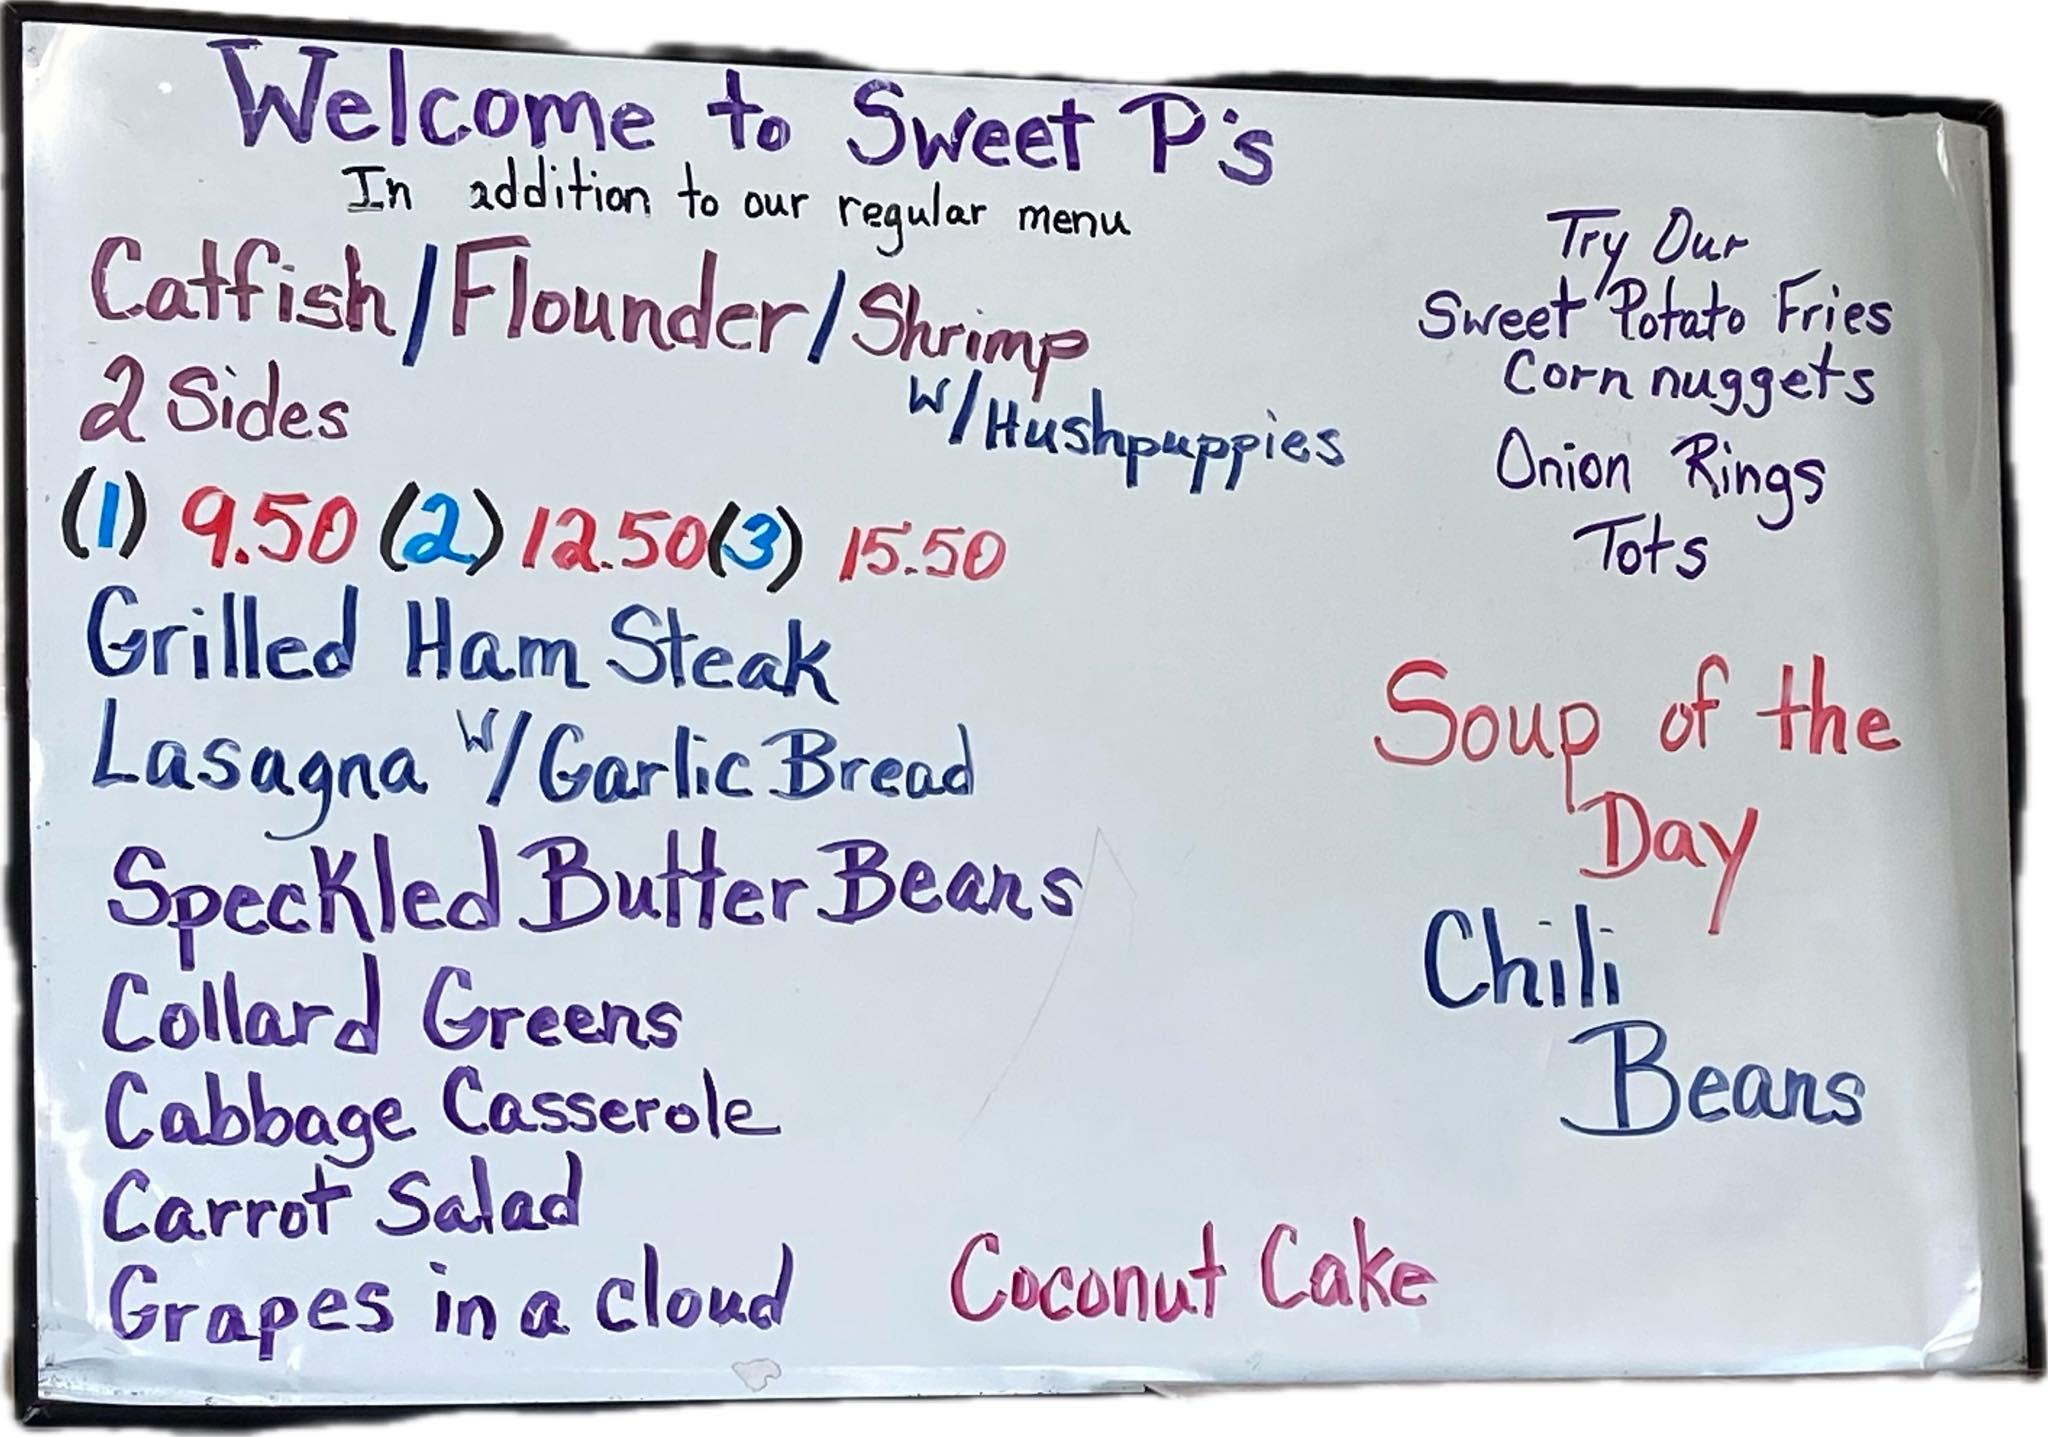 Welcome to Sweet P's
In addition to our regular menu
Catfish/Flounder/Shrimp
W/Hushpuppies
2 Sides
(1) 9.50 (2) 12.50 (3) 15.50
Grilled Ham Steak
Lasagna W/Garlic Bread
Speckled Butter Beans
Collard Greens
Cabbage Casserole
Carrot Salad
Grapes in a cloud
Coconut Cake
Try Our
Sweet Potato Fries
Corn nuggets
Onion Rings
Tots
Soup of the
Day
Chili
Beans